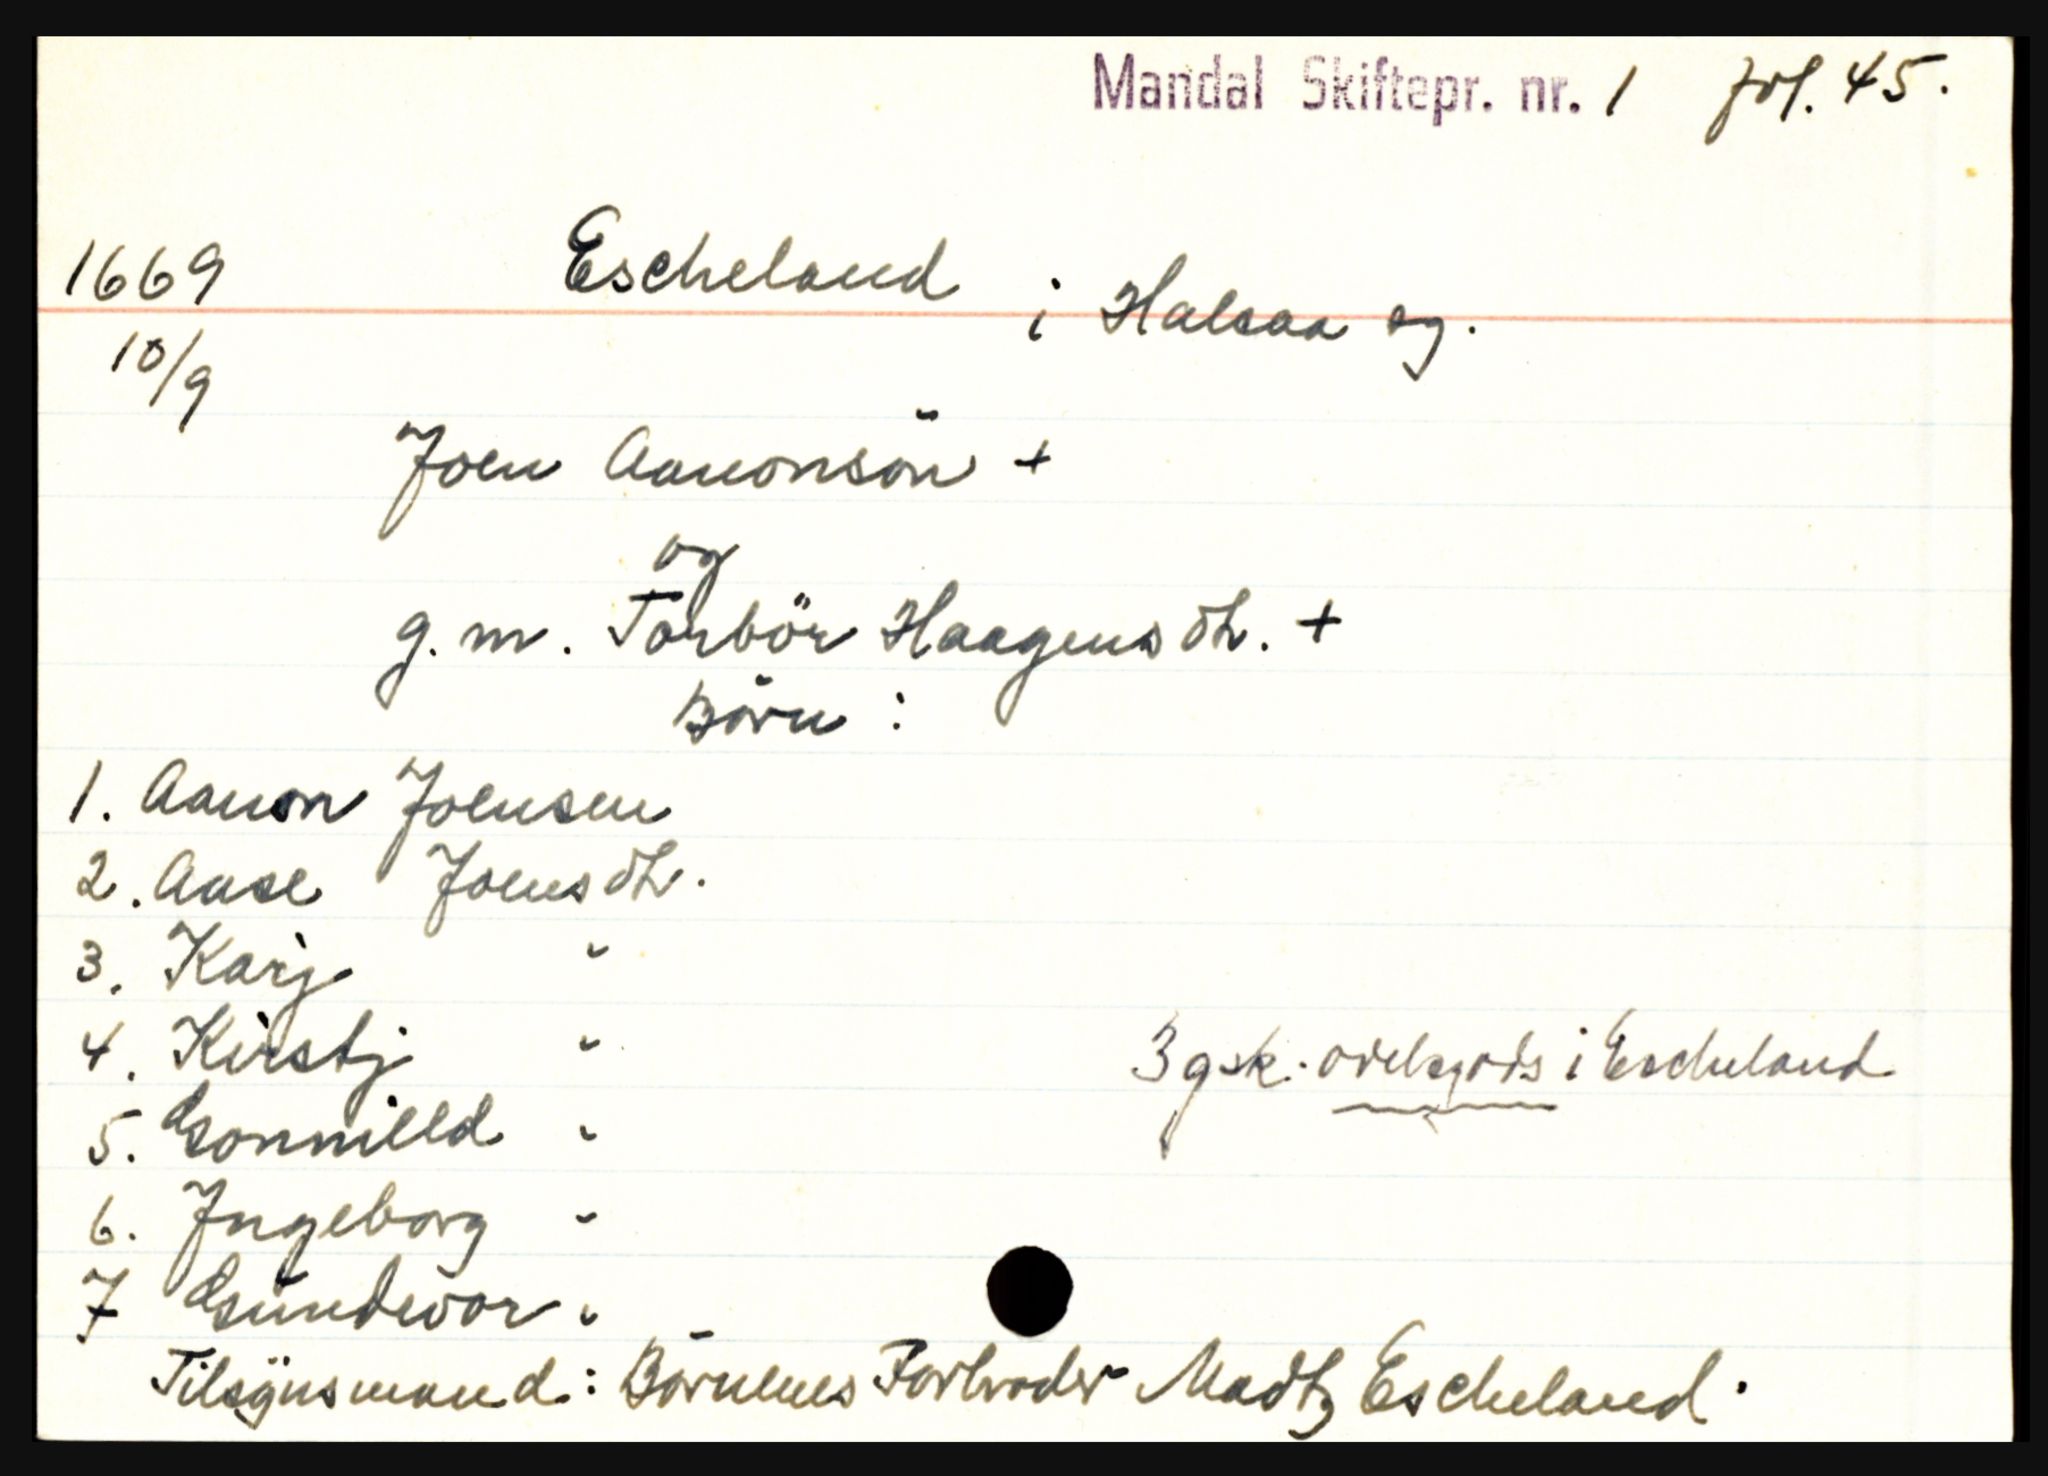 Mandal Skiftepr. nr. 1 fol. 45.
1669 Escheland i Halsaa sg.
10/9
Joen Aanonsön +
og
g. m. Torbör Haagensdtr. +
Börn :
1. Aanon Joensen
2. Aase Joensdtr.
3. Karj "
4. Kirstj "
3 gsk. odelsgods i Escheland
5. Gonnilld "
6. Ingeborg "
7 Gundevor "
Tilsÿnsmand : Börnenes Farbroder Madtz Escheland.